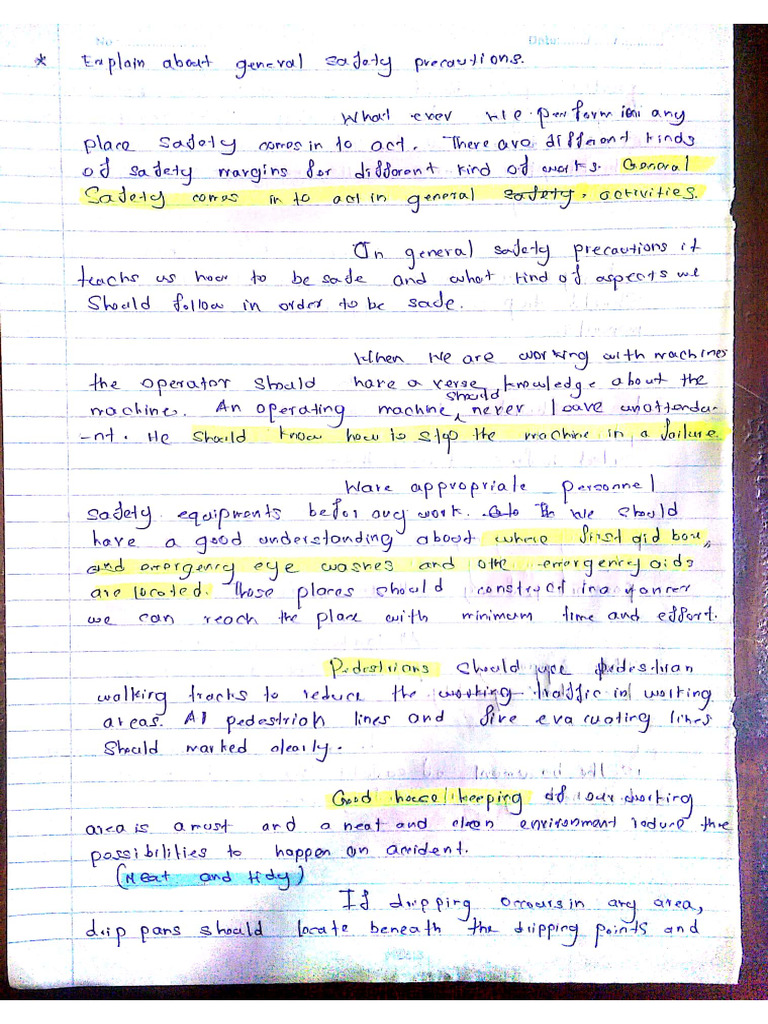 No
Date: / /
* Explain about general safety precautions.
What ever we perform in any
place safety comes in to act. There are different kinds
of safety margins for different kind of works. General
Safety comes in to act in general safety activities.
On general safety precautions it
teachs us how to be safe and what kind of aspects we
Should follow in order to be safe.
When We are working with machines
the operator should have a verse knowledge about the
machine. An operating machine should never leave unattenda-
-nt. He should know how to stop the machine in a failure
Ware appropriate personnel
safety equipments befor any work. We should
have a good understanding about where first aid box,
and emergency eye washes and othe emergency aids
are located. Those places should construct in a
we can reach the place with minimum time and effort.
Pedestrians should use pedestrian
walking tracks to reduce the working traffic in working
areas. Al pedestrian lines and fire evacuating lines
Should marked clearly.
Good house keeping of our working
area is a must and a neat and clean environment reduce the
possibilities to happen an accident.
(Neat and tidy)
If dripping occurs in any area,
drip pans should locate beneath the dripping points and